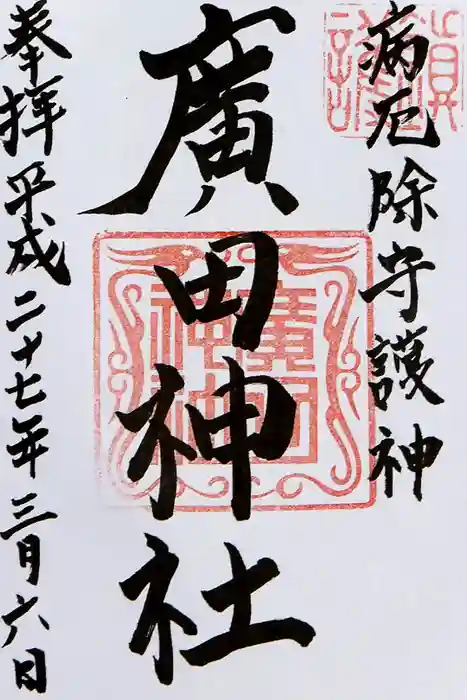 病厄除守護神
廣田神社
奉拝 平成二十七年三月六日
廣田神社